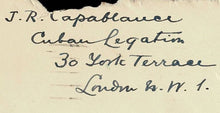 J. R. Capablanca
Cuban Legation
30 York Terrace
London N. W. 1.